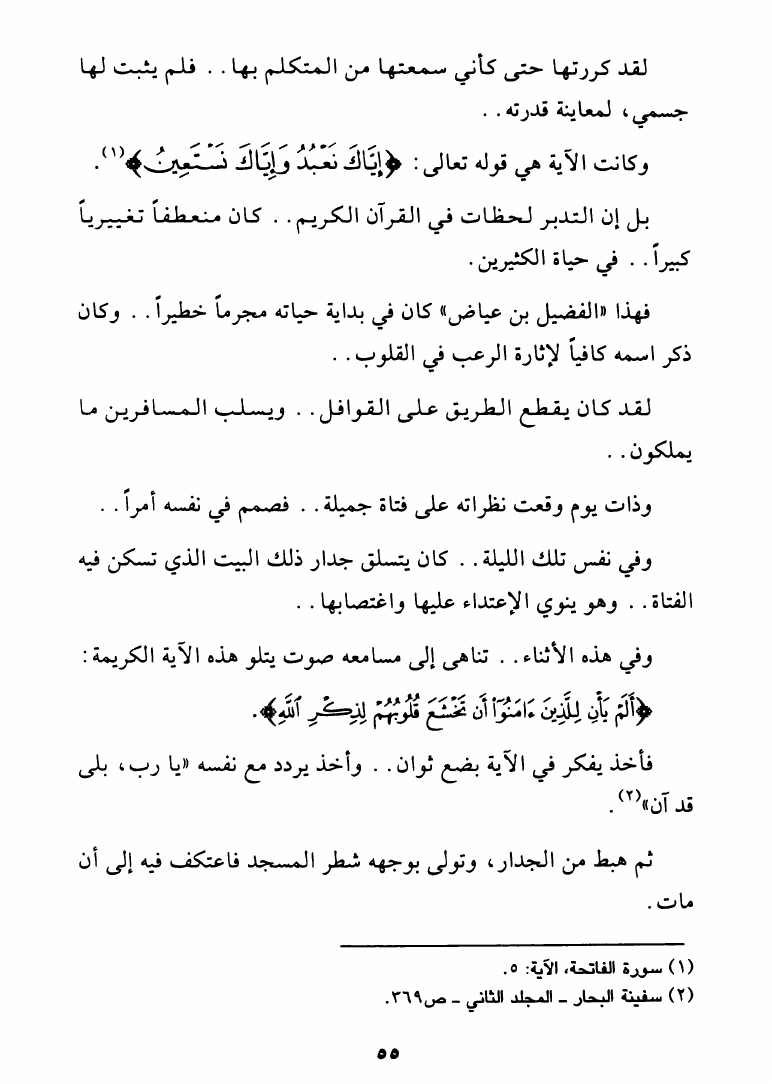 لقد كررتها حتى كأني سمعتها من المتكلم بها.. فلم يثبت لها
جسمي، لمعاينة قدرته..
وكانت الآية هي قوله تعالى: ﴿إِيَّاكَ نَعْبُدُ وَإِيَّاكَ نَسْتَعِينُ﴾(١).
بل إن التدبر لحظات في القرآن الكريم.. كان منعطفاً تغييرياً
كبيراً.. في حياة الكثيرين.
فهذا «الفضيل بن عياض» كان في بداية حياته مجرماً خطيراً.. وكان
ذكر اسمه كافياً لإثارة الرعب في القلوب..
لقد كان يقطع الطريق على القوافل.. ويسلب المسافرين ما
يملكون..
وذات يوم وقعت نظراته على فتاة جميلة.. فصمم في نفسه أمراً..
وفي نفس تلك الليلة.. كان يتسلق جدار ذلك البيت الذي تسكن فيه
الفتاة.. وهو ينوي الإعتداء عليها واغتصابها..
وفي هذه الأثناء.. تناهى إلى مسامعه صوت يتلو هذه الآية الكريمة:
﴿أَلَمْ يَأْنِ لِلَّذِينَ ءَامَنُوٓا۟ أَن تَخْشَعَ قُلُوبُهُمْ لِذِكْرِ ٱللَّهِ﴾.
فأخذ يفكر في الآية بضع ثوان.. وأخذ يردد مع نفسه «يا رب، بلى
قد آن»(٢).
ثم هبط من الجدار، وتولى بوجهه شطر المسجد فاعتكف فيه إلى أن
مات.
(١) سورة الفاتحة، الآية: ٥.
(٢) سفينة البحار - المجلد الثاني - ص٣٦٩.
٥٥